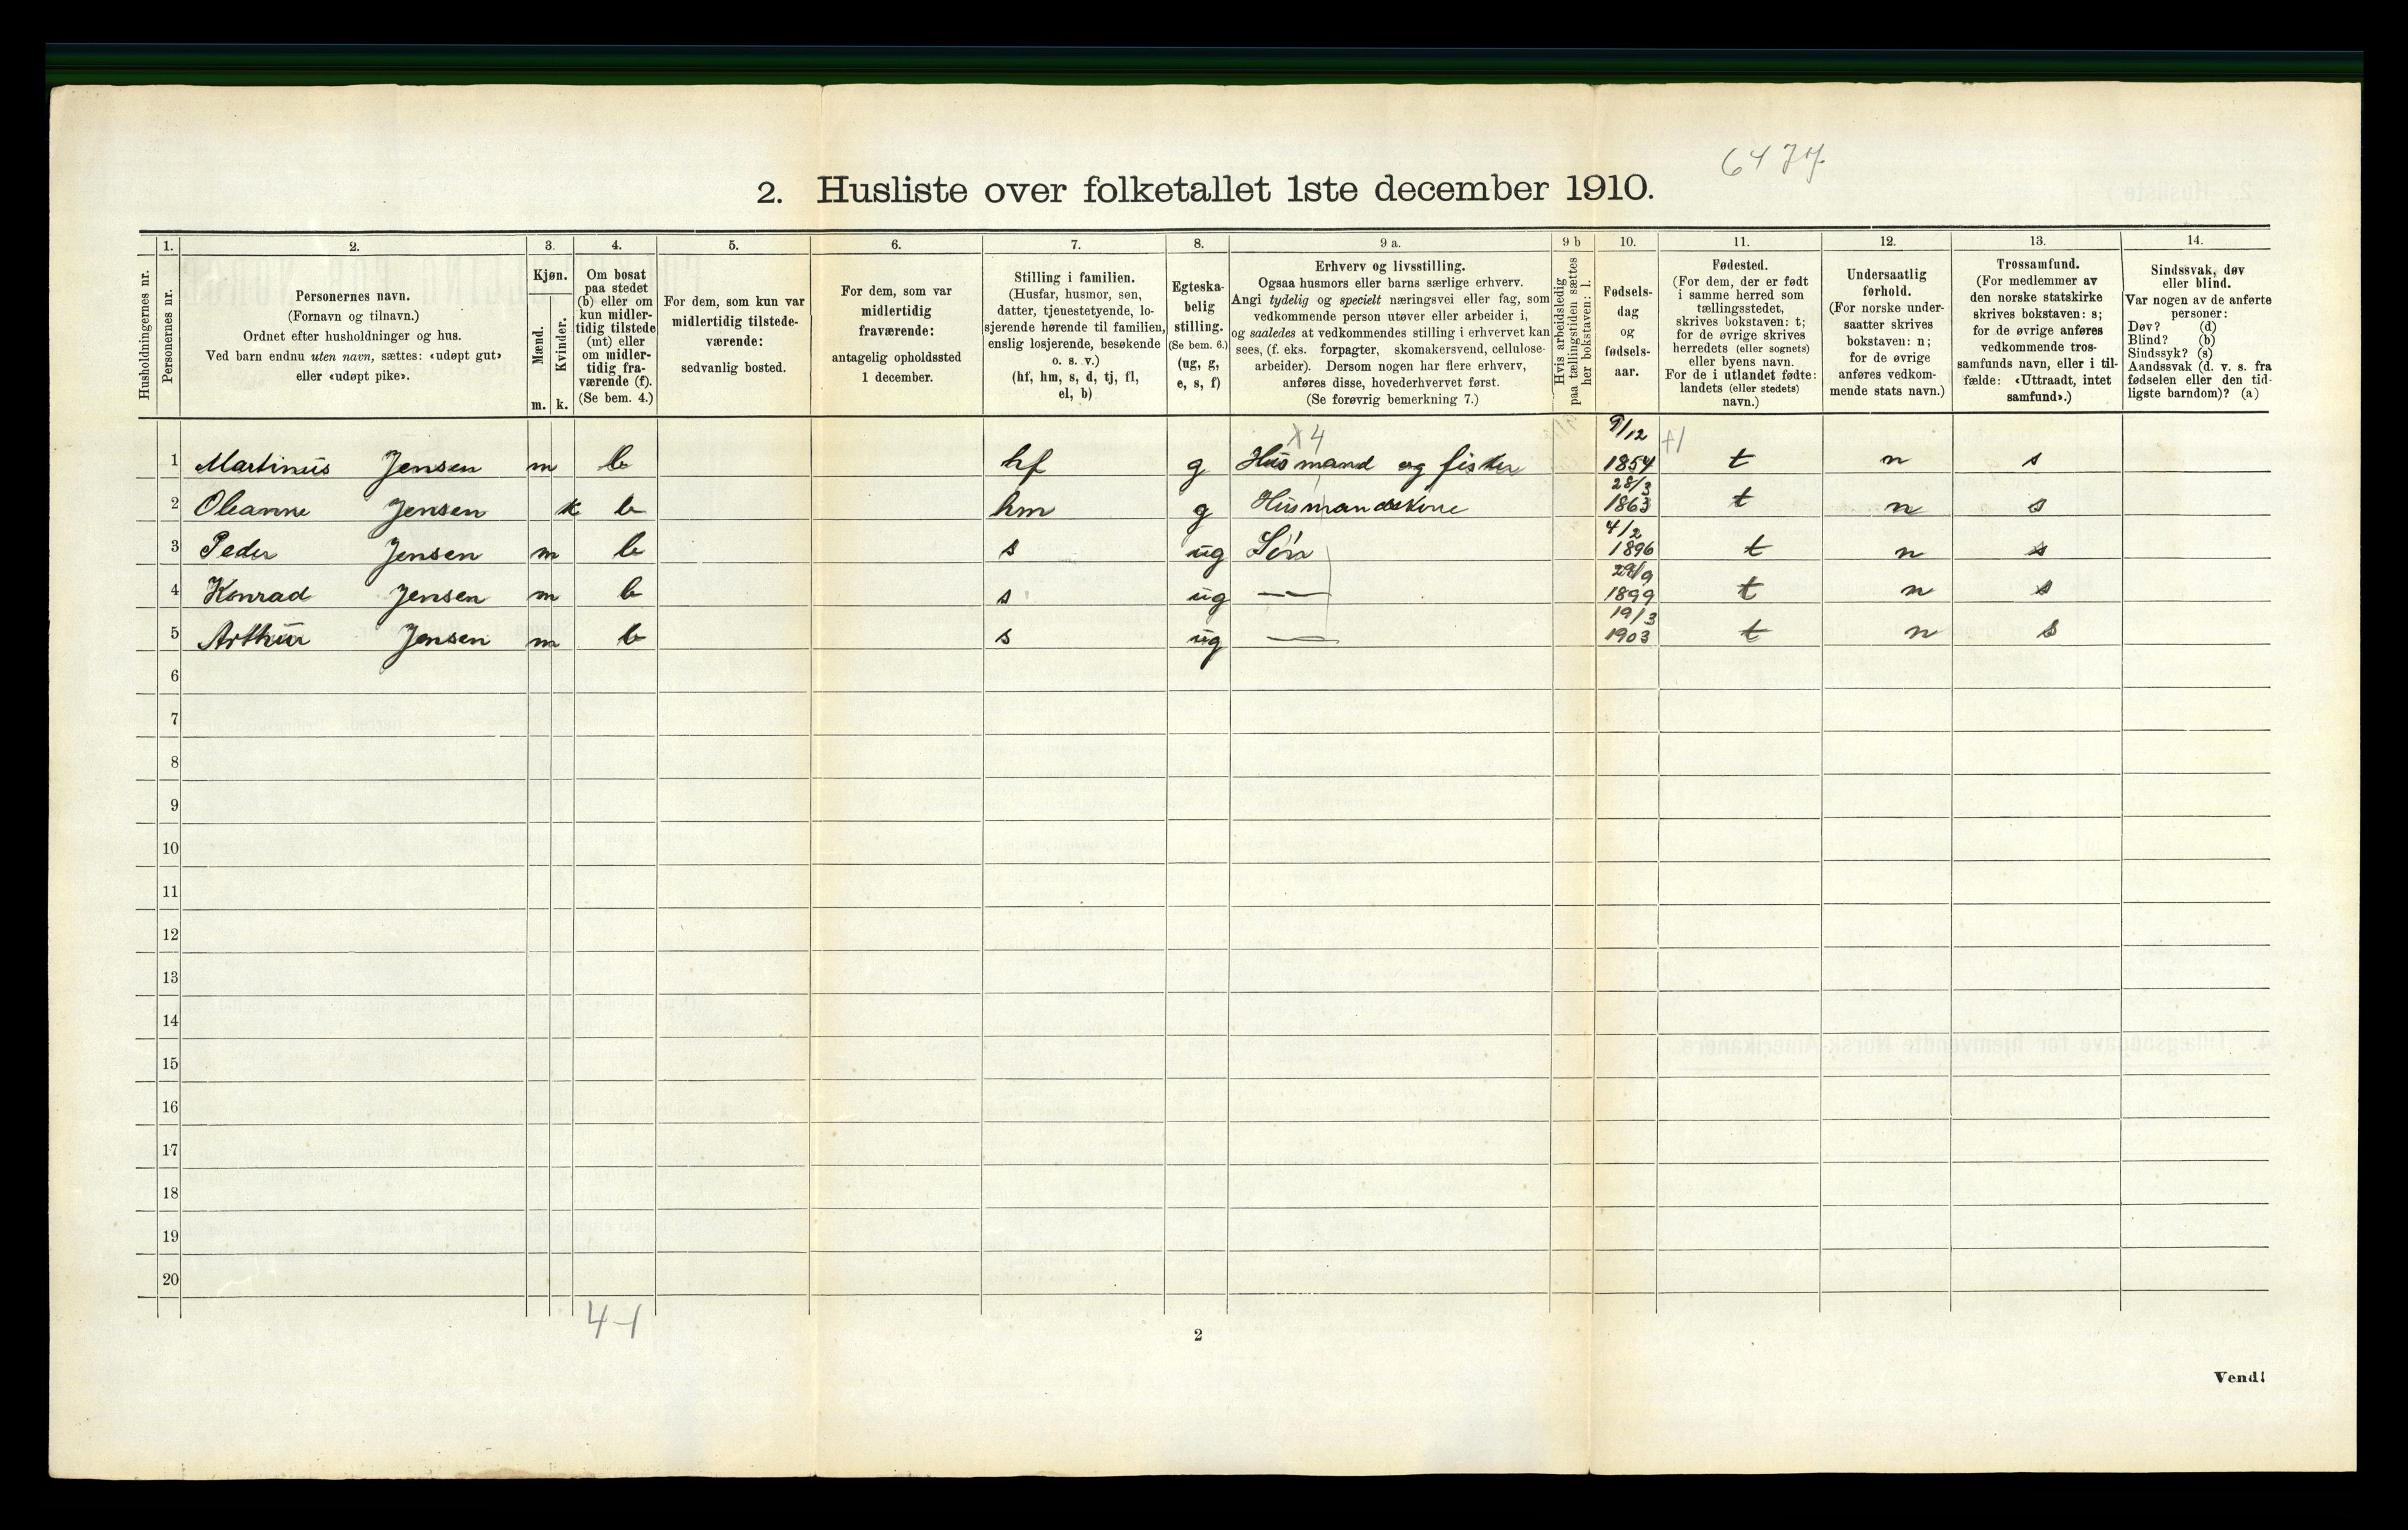 6477
2. Husliste over folketallet 1ste december 1910.
Husholdningernes nr.
1.
Personernes nr.
2.
Personernes navn.
(Fornavn og tilnavn.)
Ordnet efter husholdninger og hus.
Ved barn endnu uten navn, sættes: «udøpt gut»
eller «udøpt pike».
3.
Kjøn.
Mænd.
Kvinder.
m. k.
4.
Om bosat
paa stedet
(b) eller om
kun midler-
tidig tilstede
(mt) eller
om midler-
tidig fra-
værende (f).
(Se bem. 4.)
5.
For dem, som kun var
midlertidig tilstede-
værende:
sedvanlig bosted.
6.
For dem, som var
midlertidig
fraværende:
antagelig opholdssted
1 december.
7.
Stilling i familien.
(Husfar, husmor, søn,
datter, tjenestetyende, lo-
sjerende hørende til familien,
enslig losjerende, besøkende
o. s. v.)
(hf, hm, s, d, tj, fl,
el, b)
8.
Egteska-
belig
stilling.
(Se bem. 6.)
(ug, g,
e, s, f)
9 a.
Erhverv og livsstilling.
Ogsaa husmors eller barns særlige erhverv.
Angi tydelig og specielt næringsvei eller fag, som
vedkommende person utøver eller arbeider i,
og saaledes at vedkommendes stilling i erhvervet kan
sees, (f. eks. forpagter, skomakersvend, cellulose-
arbeider). Dersom nogen har flere erhverv,
anføres disse, hovederhvervet først.
(Se forøvrig bemerkning 7.)
9 b
Hvis arbeidsledig
paa tællingstiden sættes
her bokstaven: l.
10.
Fødsels-
dag
og
fødsels-
aar.
11.
Fødested.
(For dem, der er født
i samme herred som
tællingsstedet,
skrives bokstaven: t;
for de øvrige skrives
herredets (eller sognets)
eller byens navn.
For de i utlandet fødte:
landets (eller stedets)
navn.)
12.
Undersaatlig
forhold.
(For norske under-
saatter skrives
bokstaven: n;
for de øvrige
anføres vedkom-
mende stats navn.)
13.
Trossamfund.
(For medlemmer av
den norske statskirke
skrives bokstaven: s;
for de øvrige anføres
vedkommende tros-
samfunds navn, eller i til-
fælde: «Uttraadt, intet
samfund».)
14.
Sindssvak, døv
eller blind.
Var nogen av de anførte
personer:
Døv? (d)
Blind? (b)
Sindssyk? (s)
Aandssvak (d. v. s. fra
fødselen eller den tid-
ligste barndom)? (a)
X4 9/12
1 Martinus Jensen m b hf g Husmand og fisker 1854 t n s
28/3
2 Oleanne Jensen k b hm g Husmandskone 1863 t n s
4/2
3 Peder Jensen m b s ug Søn 1896 t n s
29/9
4 Konrad Jensen m b s ug — 1899 t n s
19/3
5 Arthur Jensen m b s ug — 1903 t n s
6
7
8
9
10
11
12
13
14
15
16
17
18
19
20
4-1
2
Vend!